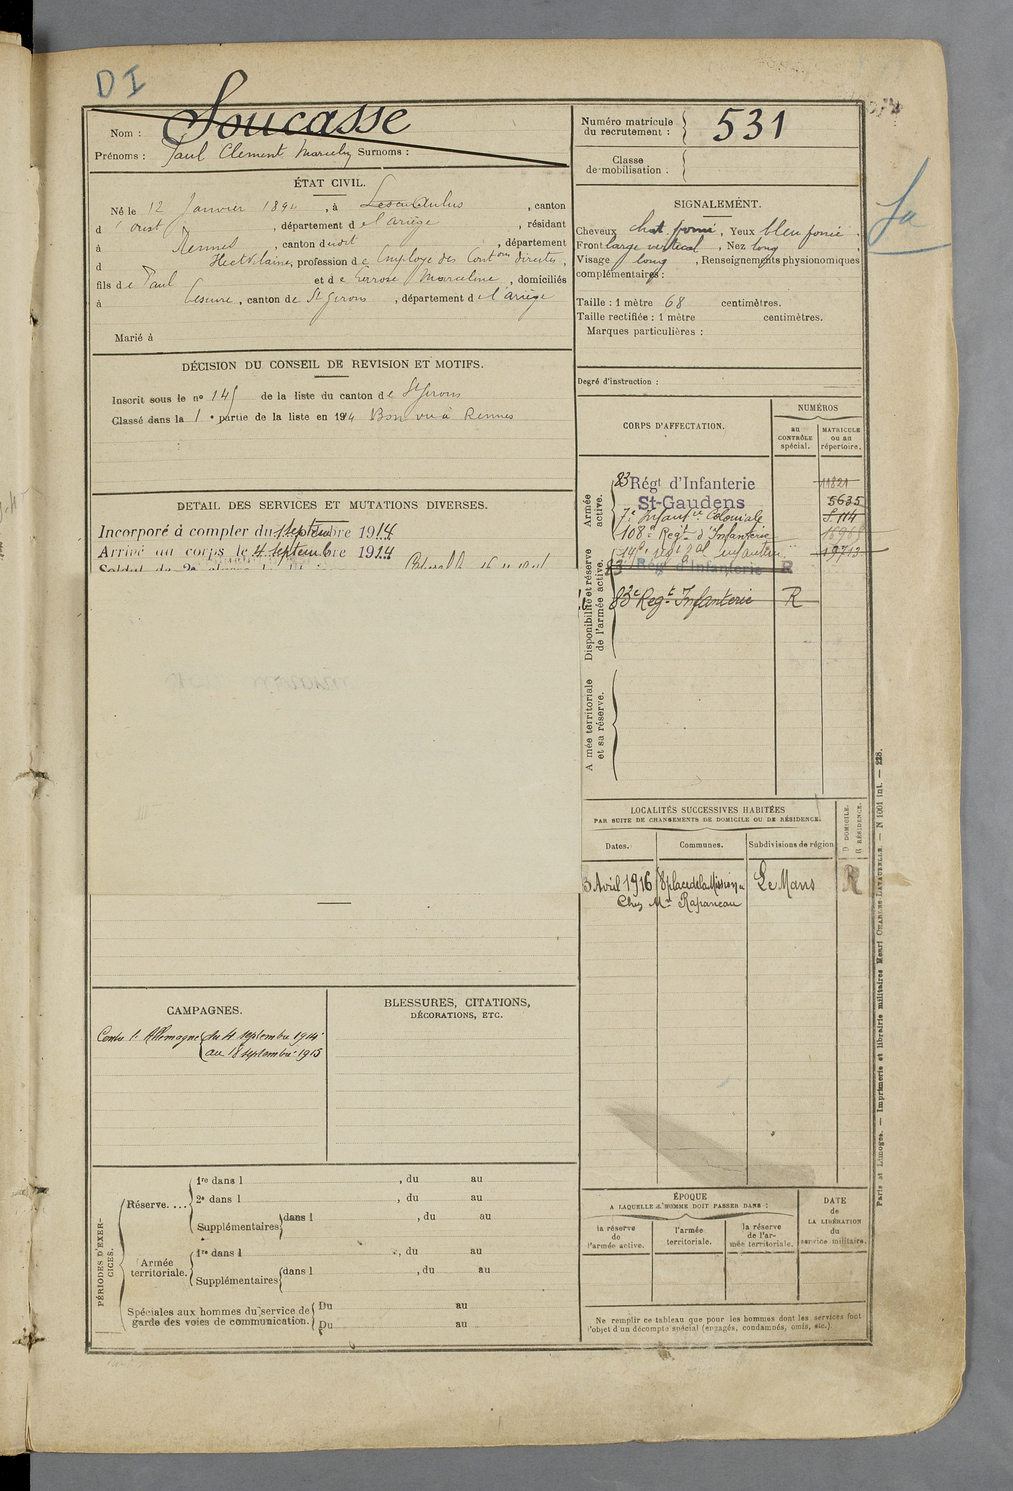 DI
Nom : Soucasse
Prénoms : Paul Clément Surnoms :
Numéro matricule du recrutement : 531
Classe de mobilisation :
ÉTAT CIVIL.
Né le 12 Janvier 189 , à , canton
d , département de l'ariège , résidant
à Rennes , canton dudit , département
d , profession de Employé des directes ,
fils de Paul et de Marceline , domiciliés
à , canton de St Girons , département de l'ariège
Marié à
SIGNALEMENT.
Cheveux chat foncé , Yeux bleu foncé .
Front large vertical , Nez long ,
Visage long , Renseignements physionomiques
complémentaires :
Taille : 1 mètre 68 centimètres.
Taille rectifiée : 1 mètre centimètres.
Marques particulières :
Degré d'instruction :
DÉCISION DU CONSEIL DE REVISION ET MOTIFS.
Inscrit sous le no 145 de la liste du canton de St Girons
Classé dans la 1e partie de la liste en 1914 Bon vu à Rennes
DETAIL DES SERVICES ET MUTATIONS DIVERSES.
Incorporé à compter du 1 septembre 1914
Arrivé au corps le 4 septembre 1914
CORPS D'AFFECTATION.
NUMÉROS
au CONTRÔLE spécial.
MATRICULE ou au répertoire.
Armée active.
83 Régt d'Infanterie
St-Gaudens
5635
7e Infantie Coloniale
108e Regt d'Infanterie
Disponibilité et réserve de l'armée active.
83 Régt d'Infanterie R
83e Regt Infanterie R
A mée territoriale et sa réserve.
LOCALITÉS SUCCESSIVES HABITÉES
PAR SUITE DE CHANGEMENTS DE DOMICILE OU DE RÉSIDENCE.
D DOMICILE.
R RÉSIDENCE.
Dates.
Communes.
Subdivisions de région
3 Avril 1916 8 place de la Mission Le Mans R
Chez Mme Rapaneau
CAMPAGNES.
Contre l'Allemagne du 4 septembre 1914
au 18 septembre 1915
BLESSURES, CITATIONS,
DÉCORATIONS, ETC.
PÉRIODES D'EXERCICES.
Réserve. ...
1re dans l , du au
2e dans l , du au
Supplémentaires dans l , du au
Armée territoriale.
1re dans l , du au
Supplémentaires dans l , du au
Spéciales aux hommes du service de
garde des voies de communication.
Du au
Du au
ÉPOQUE
A LAQUELLE L'HOMME DOIT PASSER DANS :
la réserve de l'armée active.
l'armée territoriale.
la réserve de l'armée territoriale.
DATE de LA LIBÉRATION du service militaire.
Ne remplir ce tableau que pour les hommes dont les services font
l'objet d'un décompte spécial (engagés, condamnés, omis, etc.).
Paris et Limoges. — Imprimerie et librairie militaires Henri CHARLES-LAVAUZELLE. — N 1001 int. — 228.